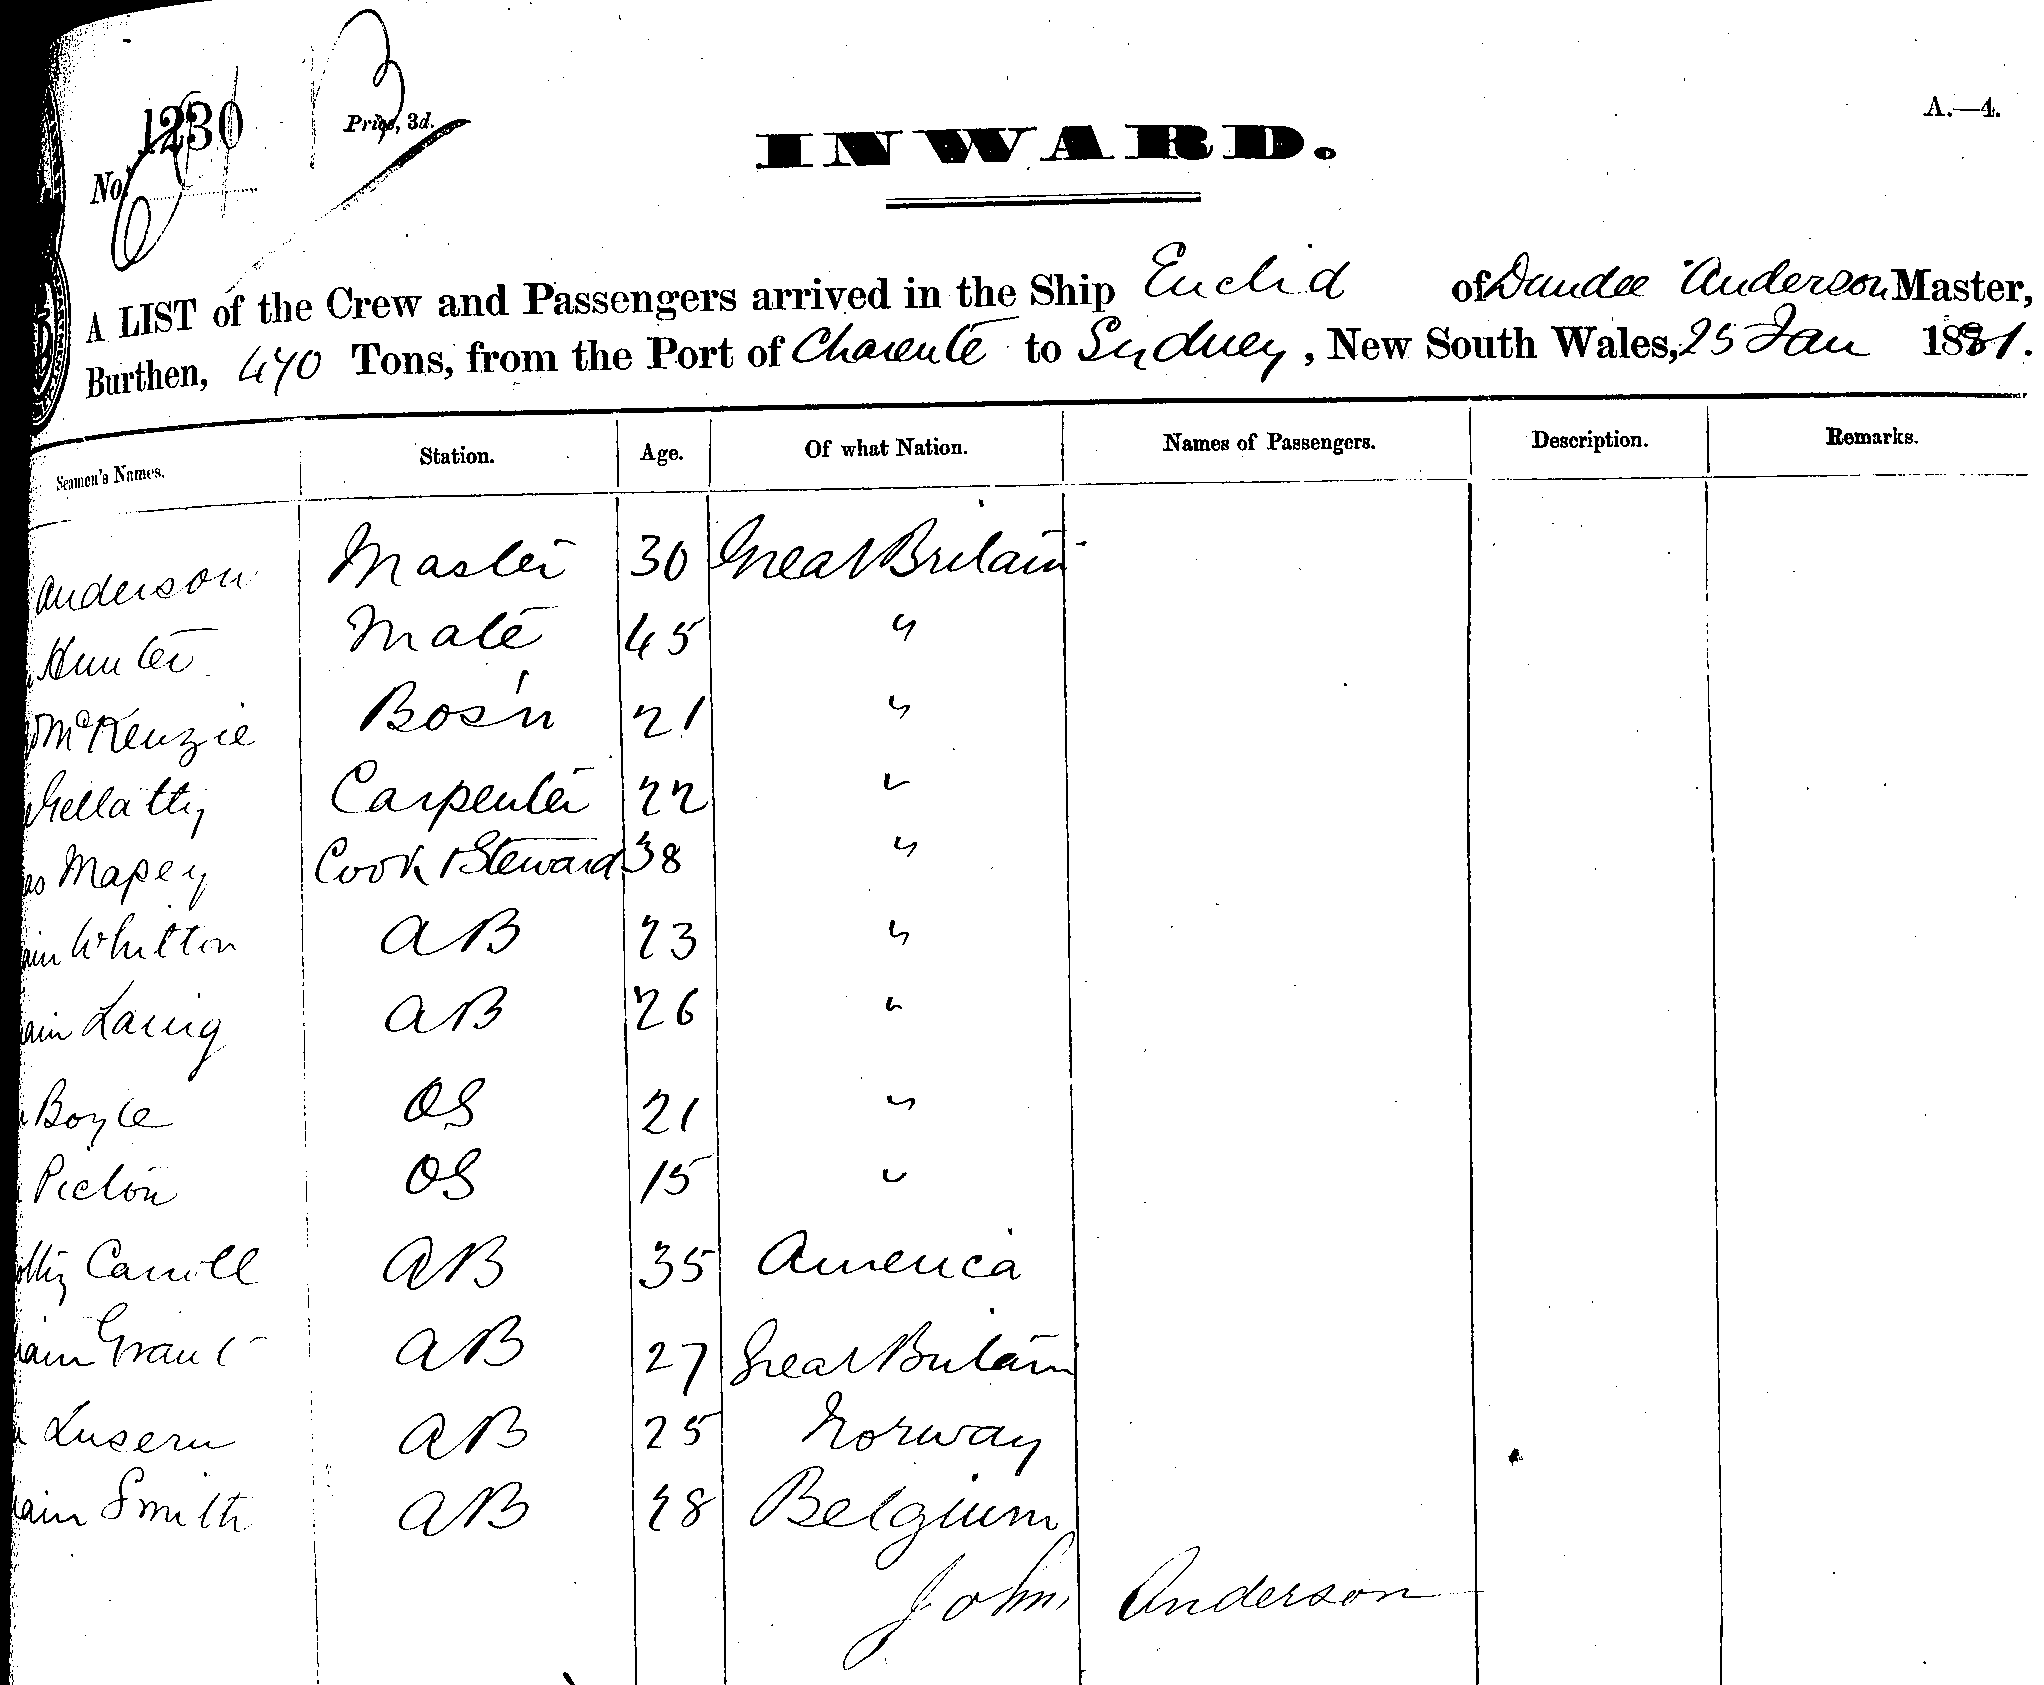 1230
Price, 3d.
A.—4.
No.
INWARD.
A LIST of the Crew and Passengers arrived in the Ship Euclid of Dundee Anderson Master,
Burthen, 470 Tons, from the Port of Charente to Sydney, New South Wales, 25 Jan 1881.
Seamen's Names. Station. Age. Of what Nation. Names of Passengers. Description. Remarks.
Anderson Master 30 Great Britain
Hunter Mate 45 "
McKenzie Bos'n 21 "
Gellatly Carpenter 22 "
Mapey Cook & Steward 38 "
Whitton AB 23 "
Laing AB 26 "
Boyle OS 21 "
Picton OS 15 "
Carroll AB 35 America
Grant AB 27 Great Britain
Lusern AB 25 Norway
Smith AB 28 Belgium
John Anderson